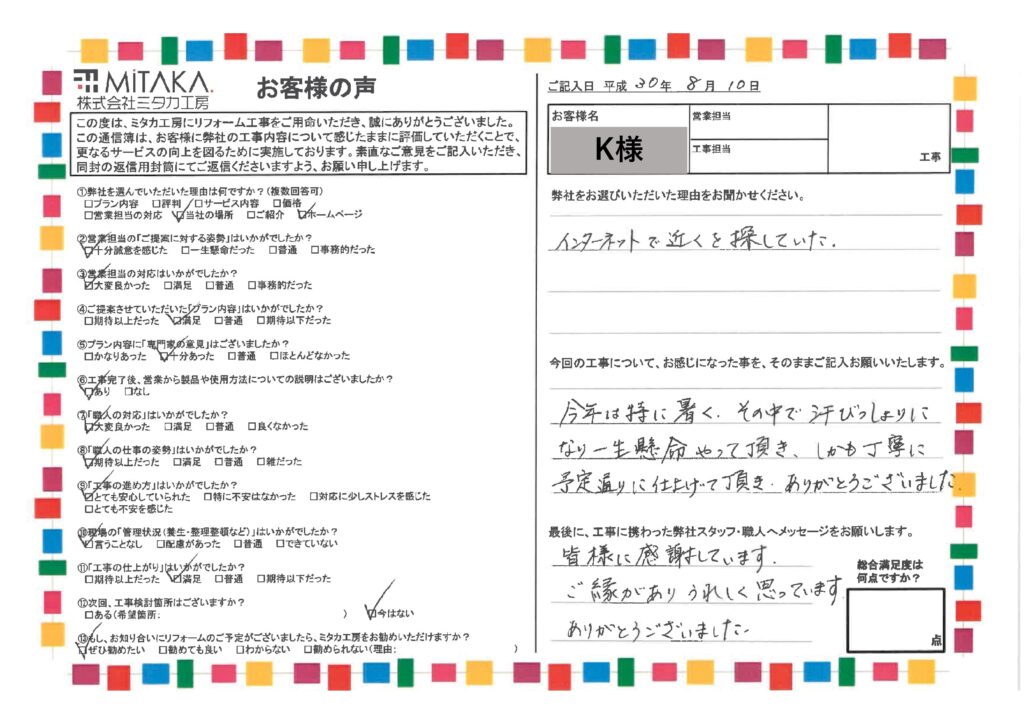 MiTAKA.
株式会社ミタカ工房
お客様の声
この度は、ミタカ工房にリフォーム工事をご用命いただき、誠にありがとうございました。
この通信簿は、お客様に弊社の工事内容について感じたままに評価していただくことで、
更なるサービスの向上を図るために実施しております。素直なご意見をご記入いただき、
同封の返信用封筒にてご返信くださいますよう、お願い申し上げます。
①弊社を選んでいただいた理由は何ですか?(複数回答可)
□プラン内容 □評判 □サービス内容 □価格
□営業担当の対応 □当社の場所 □ご紹介 □ホームページ
②営業担当の「ご提案に対する姿勢」はいかがでしたか?
□十分誠意を感じた □一生懸命だった □普通 □事務的だった
③営業担当の対応はいかがでしたか?
□大変良かった □満足 □普通 □事務的だった
④ご提案させていただいた「プラン内容」はいかがでしたか?
□期待以上だった □満足 □普通 □期待以下だった
⑤プラン内容に「専門家の意見」はございましたか?
□かなりあった □十分あった □普通 □ほとんどなかった
⑥工事完了後、営業から製品や使用方法についての説明はございましたか?
□あり □なし
⑦「職人の対応」はいかがでしたか?
□大変良かった □満足 □普通 □良くなかった
⑧「職人の仕事の姿勢」はいかがでしたか?
□期待以上だった □満足 □普通 □雑だった
⑨「工事の進め方」はいかがでしたか?
□とても安心していられた □特に不安はなかった □対応に少しストレスを感じた
□とても不安を感じた
⑩現場の「管理状況(養生・整理整頓など)」はいかがでしたか?
□言うことなし □配慮があった □普通 □できていない
⑪「工事の仕上がり」はいかがでしたか?
□期待以上だった □満足 □普通 □期待以下だった
⑫次回、工事検討箇所はございますか?
□ある(希望箇所: ) □今はない
⑬もし、お知り合いにリフォームのご予定がございましたら、ミタカ工房をお勧めいただけますか?
□ぜひ勧めたい □勧めても良い □わからない □勧められない(理由: )
ご記入日 平成 30年 8月 10日
お客様名
K様
営業担当
工事担当
工事
弊社をお選びいただいた理由をお聞かせください。
インターネットで近くを探していた.
今回の工事について、お感じになった事を、そのままご記入お願いいたします。
今年は特に暑く. その中で汗びっしょりに
なり一生懸命やって頂き、しかも丁寧に
予定通りに仕上げて頂き. ありがとうございました.
最後に、工事に携わった弊社スタッフ・職人へメッセージをお願いします。
皆様に感謝しています.
ご縁がありうれしく思っています
ありがとうございました.
総合満足度は
何点ですか?
点